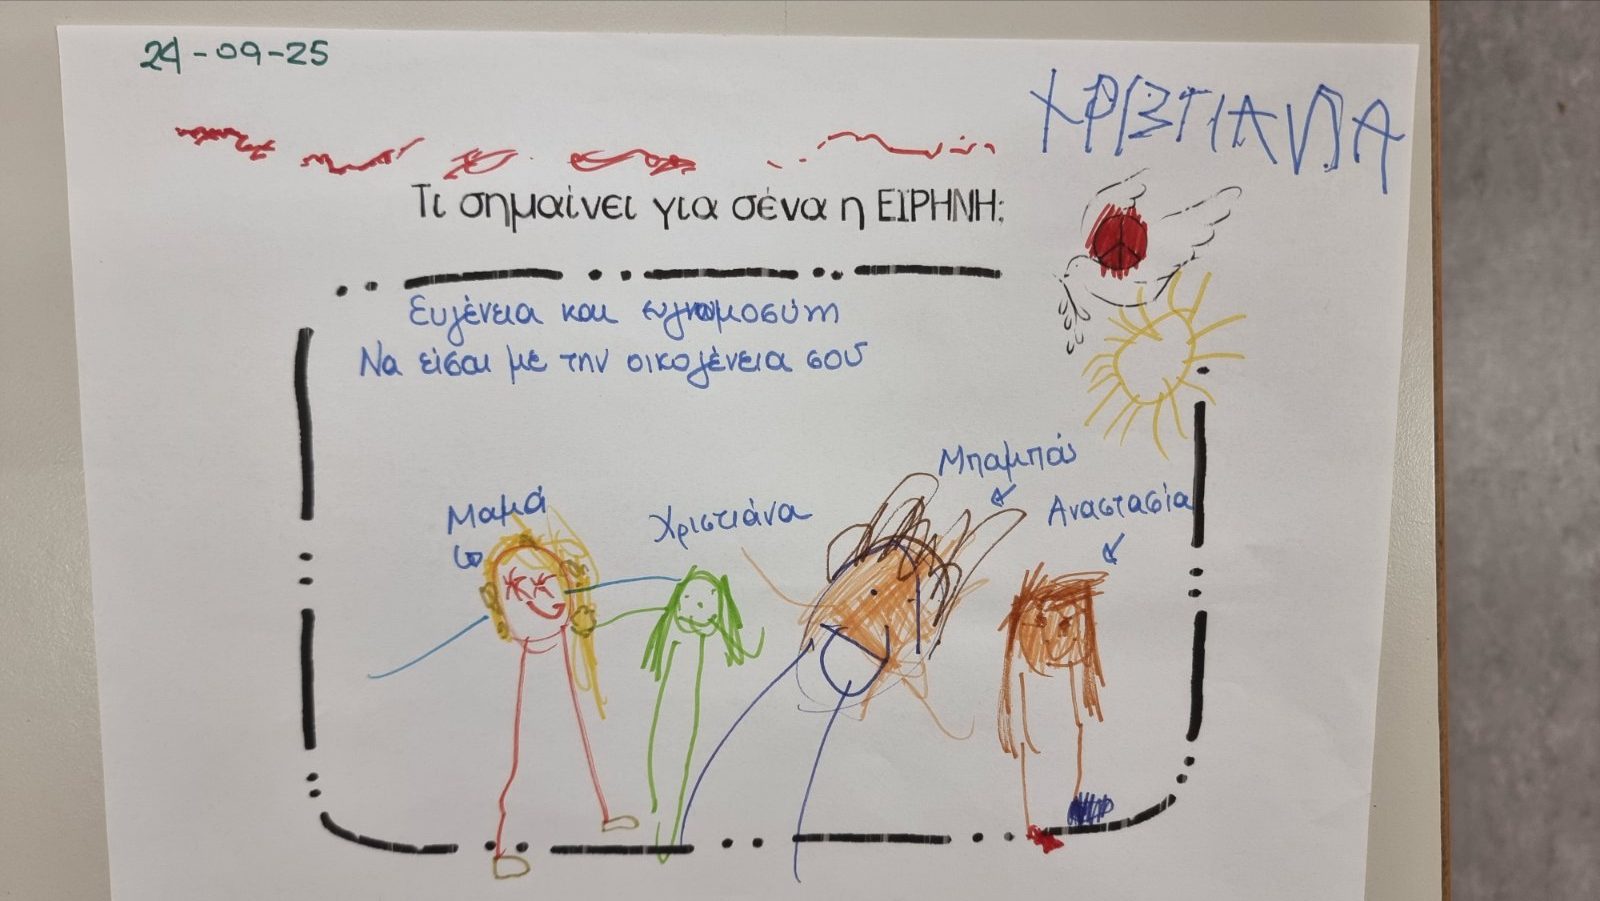 24-09-25
ΧΡΙΣΤΙΑΝΑ
Τι σημαίνει για σένα η ΕΙΡΗΝΗ;
Ευγένεια και ευγνωμοσύνη
Να είσαι με την οικογένεια σου
Μπαμπάς
Μαμά
Χριστιάνα
Αναστασία